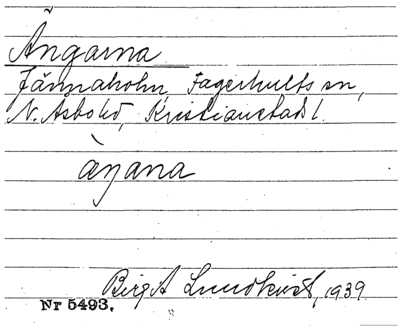 Ängarna
Färmaholm, Fagerhults sn,
N. Åsbo hd, Kristianstads l.
àŋana
Birgit Lundkvist, 1939
Nr 5493.